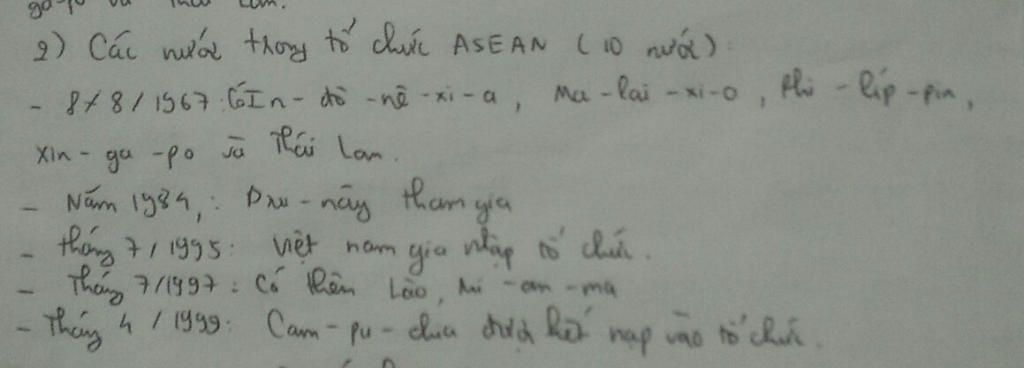 ga-po và Thái Lan.
2) Các nước trong tổ chức ASEAN (10 nước):
- 8/8/1967: Có In-đô-nê-xi-a, Ma-lai-xi-a, Phi-líp-pin,
Xin-ga-po và Thái Lan.
- Năm 1984,: Bru-nây tham gia
- tháng 7/1995: Việt nam gia nhập tổ chức.
- Tháng 7/1997: Có thêm Lào, Mi-an-ma
- Tháng 4/1999: Cam-pu-chia được kết nạp vào tổ chức.